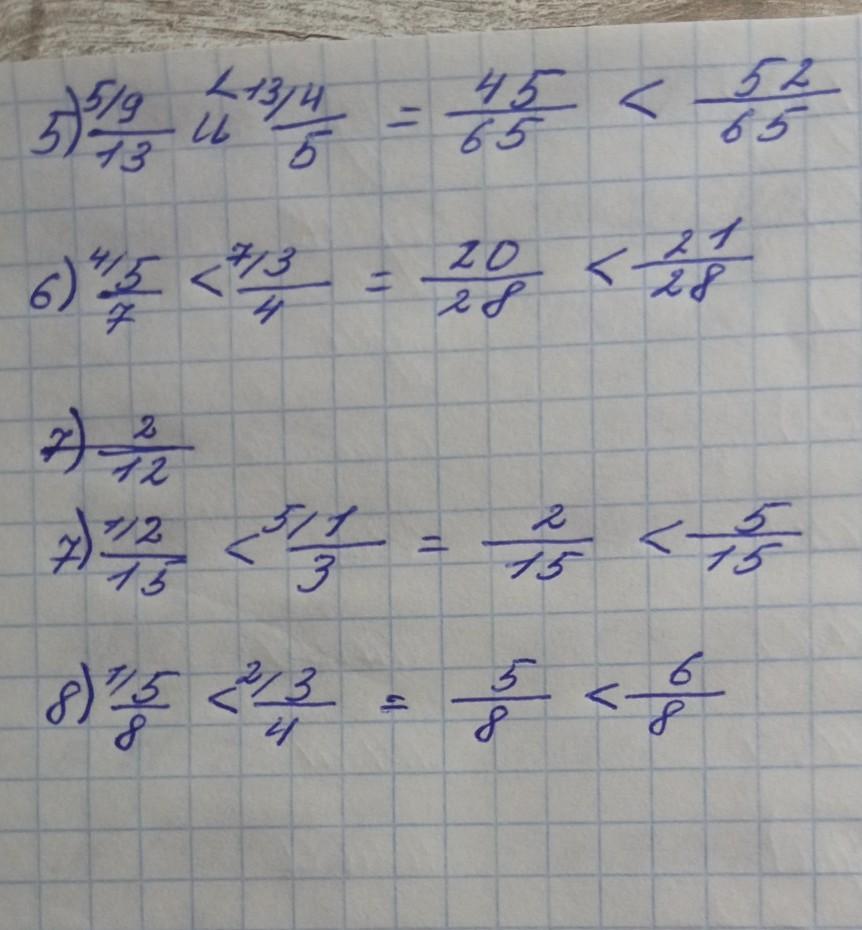 5) 5/9/13 и < 13/4/5 = 45/65 < 52/65
6) 4/5/7 < 7/3/4 = 20/28 < 21/28
7) 2/12
7) 1/2/15 < 5/1/3 = 2/15 < 5/15
8) 1/5/8 < 2/3/4 = 5/8 < 6/8